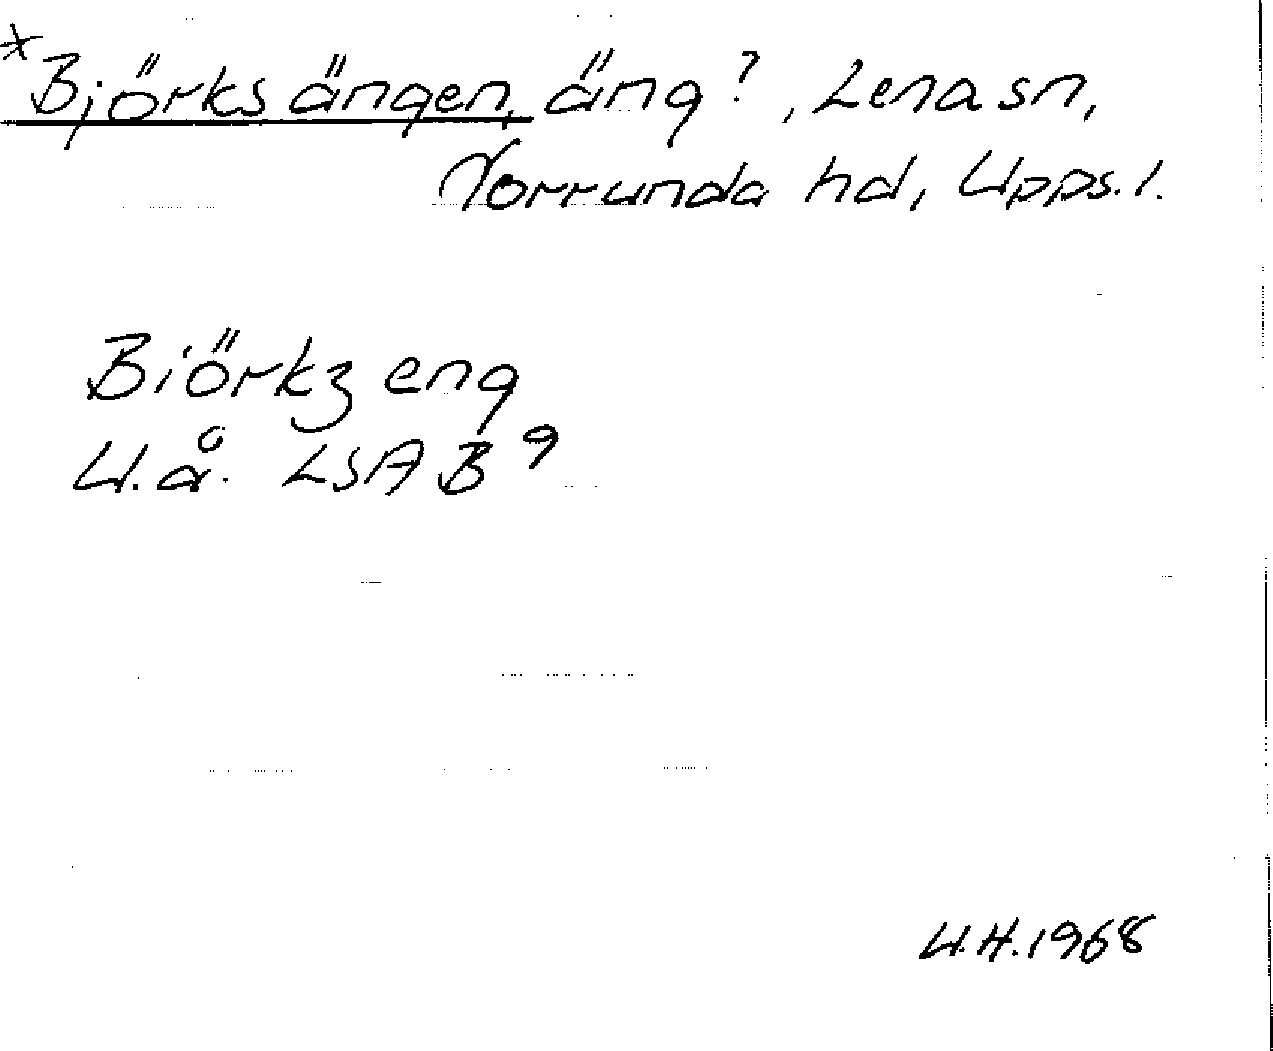 *Björksängen, äng?, Lena sn,
Norrunda hd, Upps. l.
Biörkz eng
U.å. LSA B9
U.H. 1968